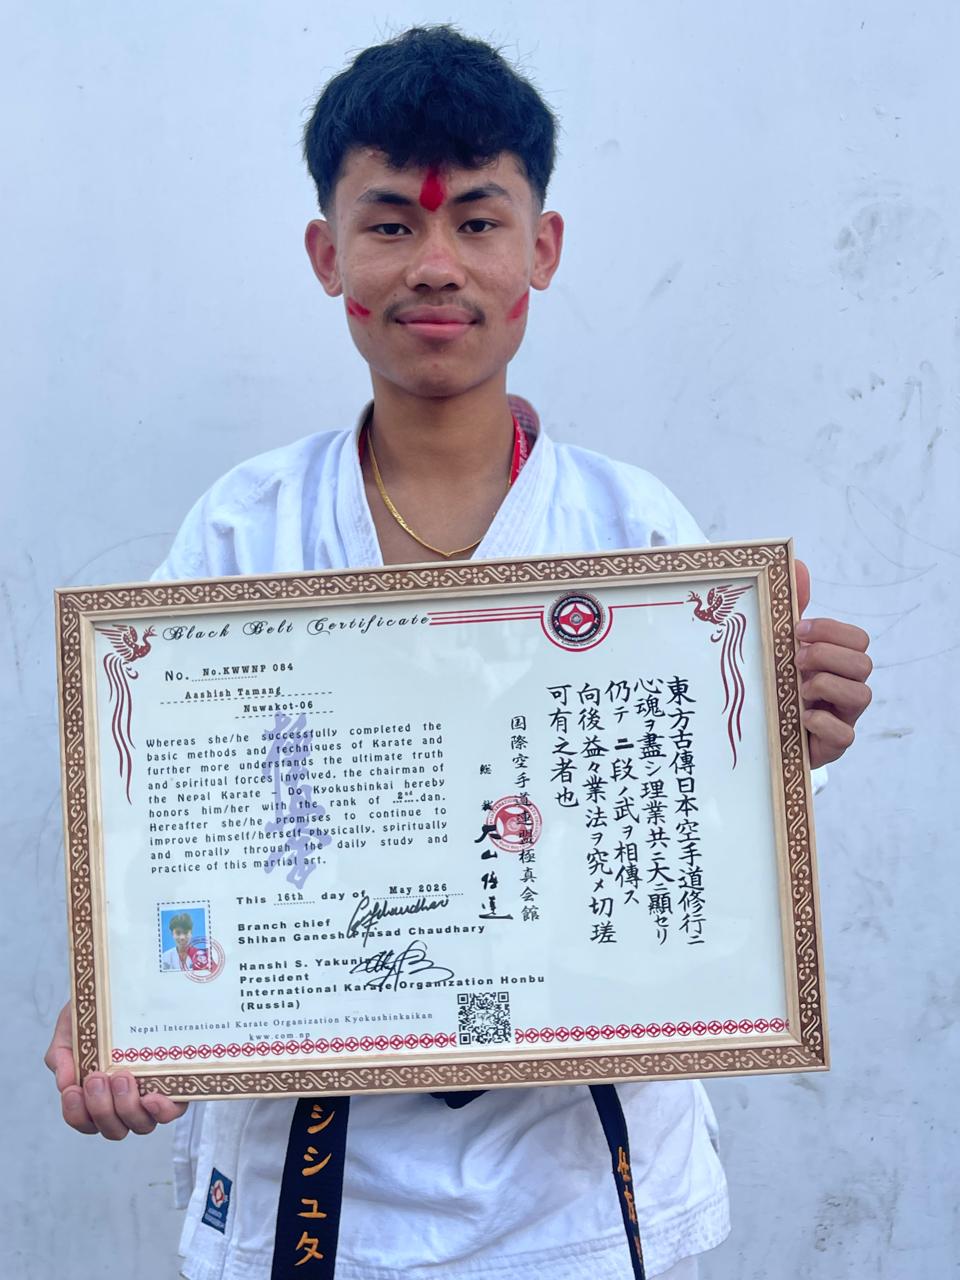 Black Belt Certificate
No. No.KWWNP 084
Aashish Tamang
Nuwakot-06
Whereas she/he successfully completed the
basic methods and techniques of Karate and
further more understands the ultimate truth
and spiritual forces involved, the chairman of
the Nepal Karate - Do Kyokushinkai hereby
honors him/her with the rank of 2nd dan.
Hereafter she/he promises to continue to
improve himself/herself physically, spiritually
and morally through the daily study and
practice of this martial art.
This 16th day of May 2026
Branch chief
Shihan Ganesh Prasad Chaudhary
Hanshi S. Yakunin
President
International Karate Organization Honbu
(Russia)
Nepal International Karate Organization Kyokushinkaikan
kww.com.np
極真会
東方古傳日本空手道修行ニ
心魂ヲ盡シ理業共ニ大ニ顯セリ
仍テ二段ノ武ヲ相傳ス
向後益々業法ヲ究メ切瑳
可有之者也
国際空手道連盟極真会館
総裁 大山倍達
シシユタ